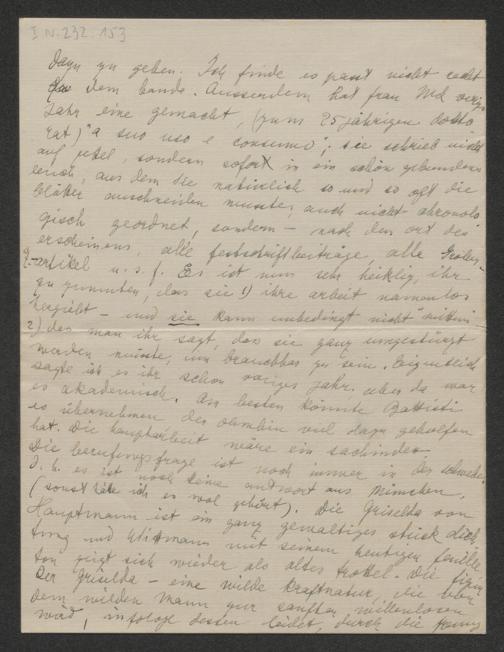 I. N. 232.153
dazu zu geben. Ich finde es passt nicht recht
zu dem bande. Ausserdem hat frau ML voriges
Jahr eine gemacht, (zum 25-jährigen dokto
rat) "a suo uso e consumo"; sie schrieb nicht
auf zettel, sondern sofort in ein schön gebundenes
buch, aus dem sie natürlich so und so oft die
blätter ausschneiden musste; auch nicht chronolo
gisch geordnet, sondern – nach den ort des
erscheinens, alle festschriftbeiträge, alle Gröber-
artikel u. s. f. Es ist nun sehr heiklig, ihr
zu zumuten, das sie 1) ihre arbeit namenlos
hergibt – und sie kann unbedingt nicht
2) das man ihr sagt, das sie ganz umgestürzt
werden müsste, um brauchbar zu sein. Eigentlich
sagte ich es ihr schon voriges jahr. aber da war
es akademisch. Am besten könnte Battisti
es übernehmen der ohnehin viel dazu geholfen
hat. Die hauptarbeit wäre ein sachindex.
Die berufungsfrage ist noch immer in der schwebe.
D. h. es ist noch keine antwort aus München.
(sonst hätte ich es wol gehört). Die Griselda von
Hauptmann ist ein ganz gewaltiges stück dich
tung und Wittmann mit seinem heutigen feuille
ton zeigt sich wieder als alter trottel. Die figur
der Griselda – eine wilde kraftnatur, die
dem wilden mann zur sanften willenlosen
wird, infolge dessen leidet, durch die